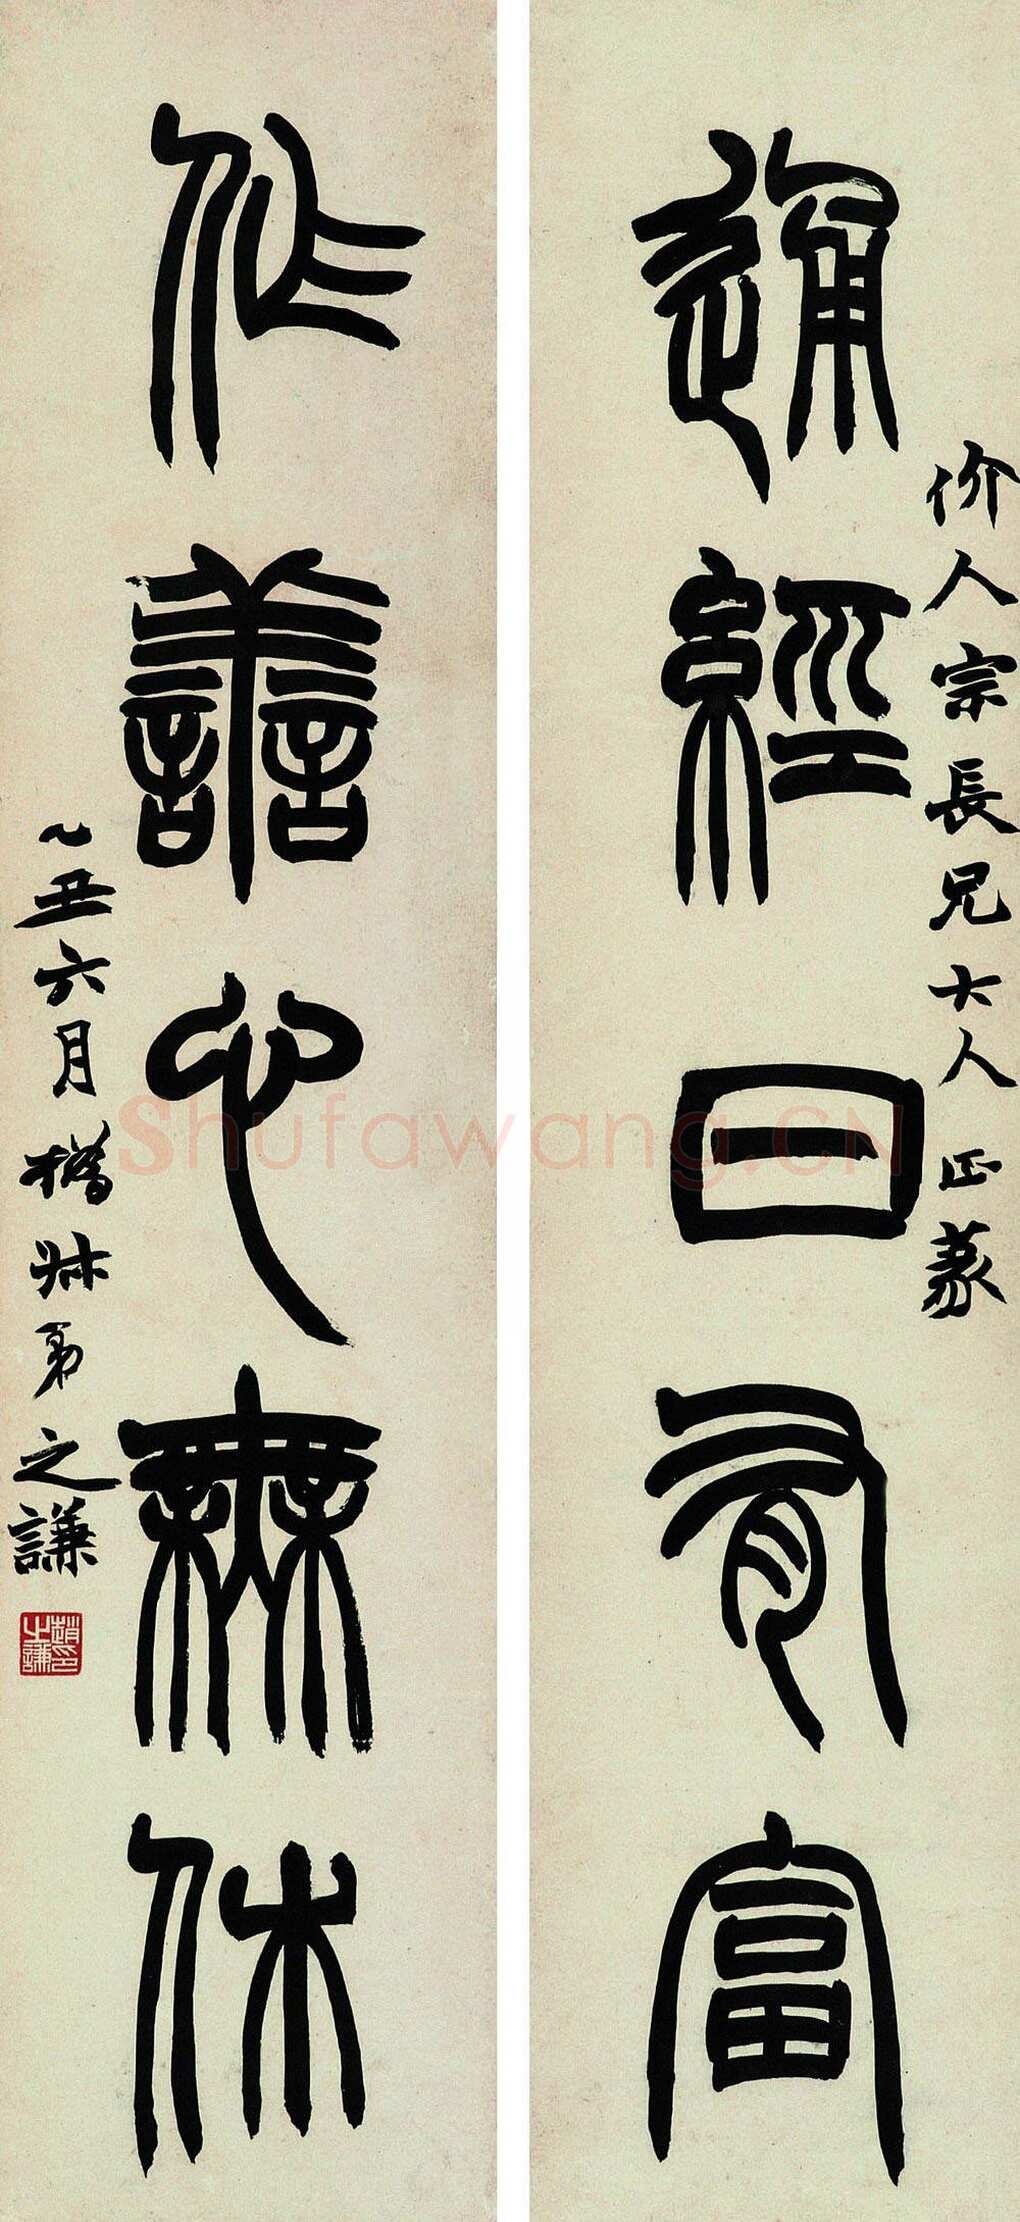 通經日有富
价人宗長兄大人正篆
作善心無休
乙丑六月撝叔弟之謙
趙之謙印
Shufawang.CN